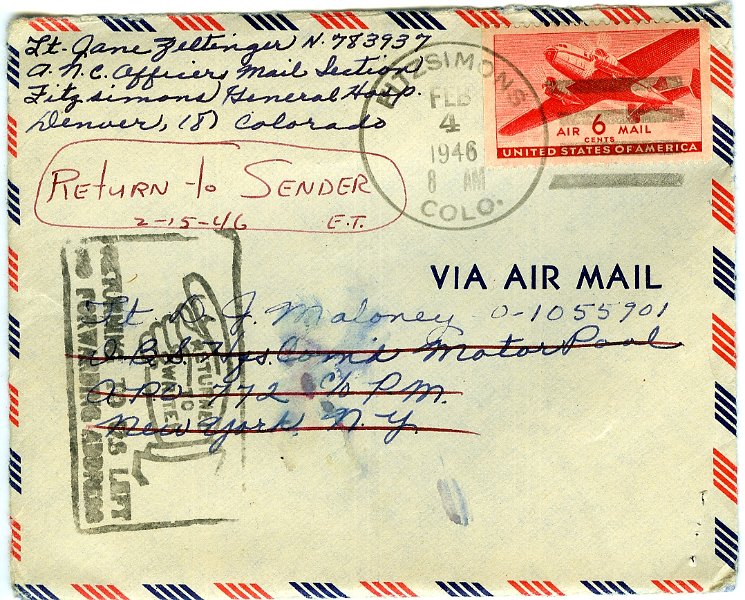 Lt. Jane Zeltinger N. 783937
A.N.C. Officers Mail Section
Fitzsimons General Hosp.
Denver, (8) Colorado
FITZSIMONS
FEB
4
1946
8 AM
COLO.
AIR 6 MAIL
CENTS
UNITED STATES OF AMERICA
RETURN to SENDER
2-15-46 E.T.
VIA AIR MAIL
Lt D. J. Maloney O-1055901
Com'd Motor Pool
APO 772 c/o P.M.
New York N.Y.
RETURNED TO U.S. LEFT
NO FORWARDING ADDRESS
RETURNED
TO
WRITER